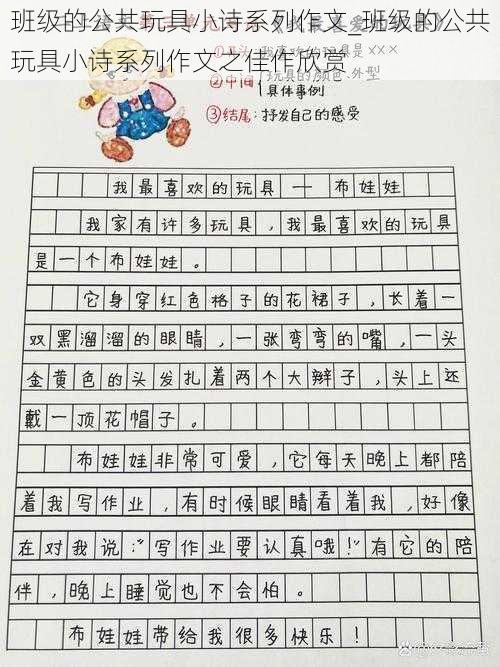 班级的公共玩具小诗系列作文_班级的公共
玩具小诗系列作文之佳作欣赏
②中间
玩具的颜色、外型
具体事例
③结尾:抒发自己的感受
我最喜欢的玩具——布娃娃
我家有许多玩具,我最喜欢的玩具
是一个布娃娃。
它身穿红色格子的花裙子,长着一
双黑溜溜的眼睛,一张弯弯的嘴,一头
金黄色的头发扎着两个大辫子,头上还
戴一顶花帽子。
布娃娃非常可爱,它每天晚上都陪
着我写作业,有时候眼睛看着我,好像
在对我说:“写作业要认真哦!”有它的陪
伴,晚上睡觉也不会怕。
布娃娃带给我很多快乐!